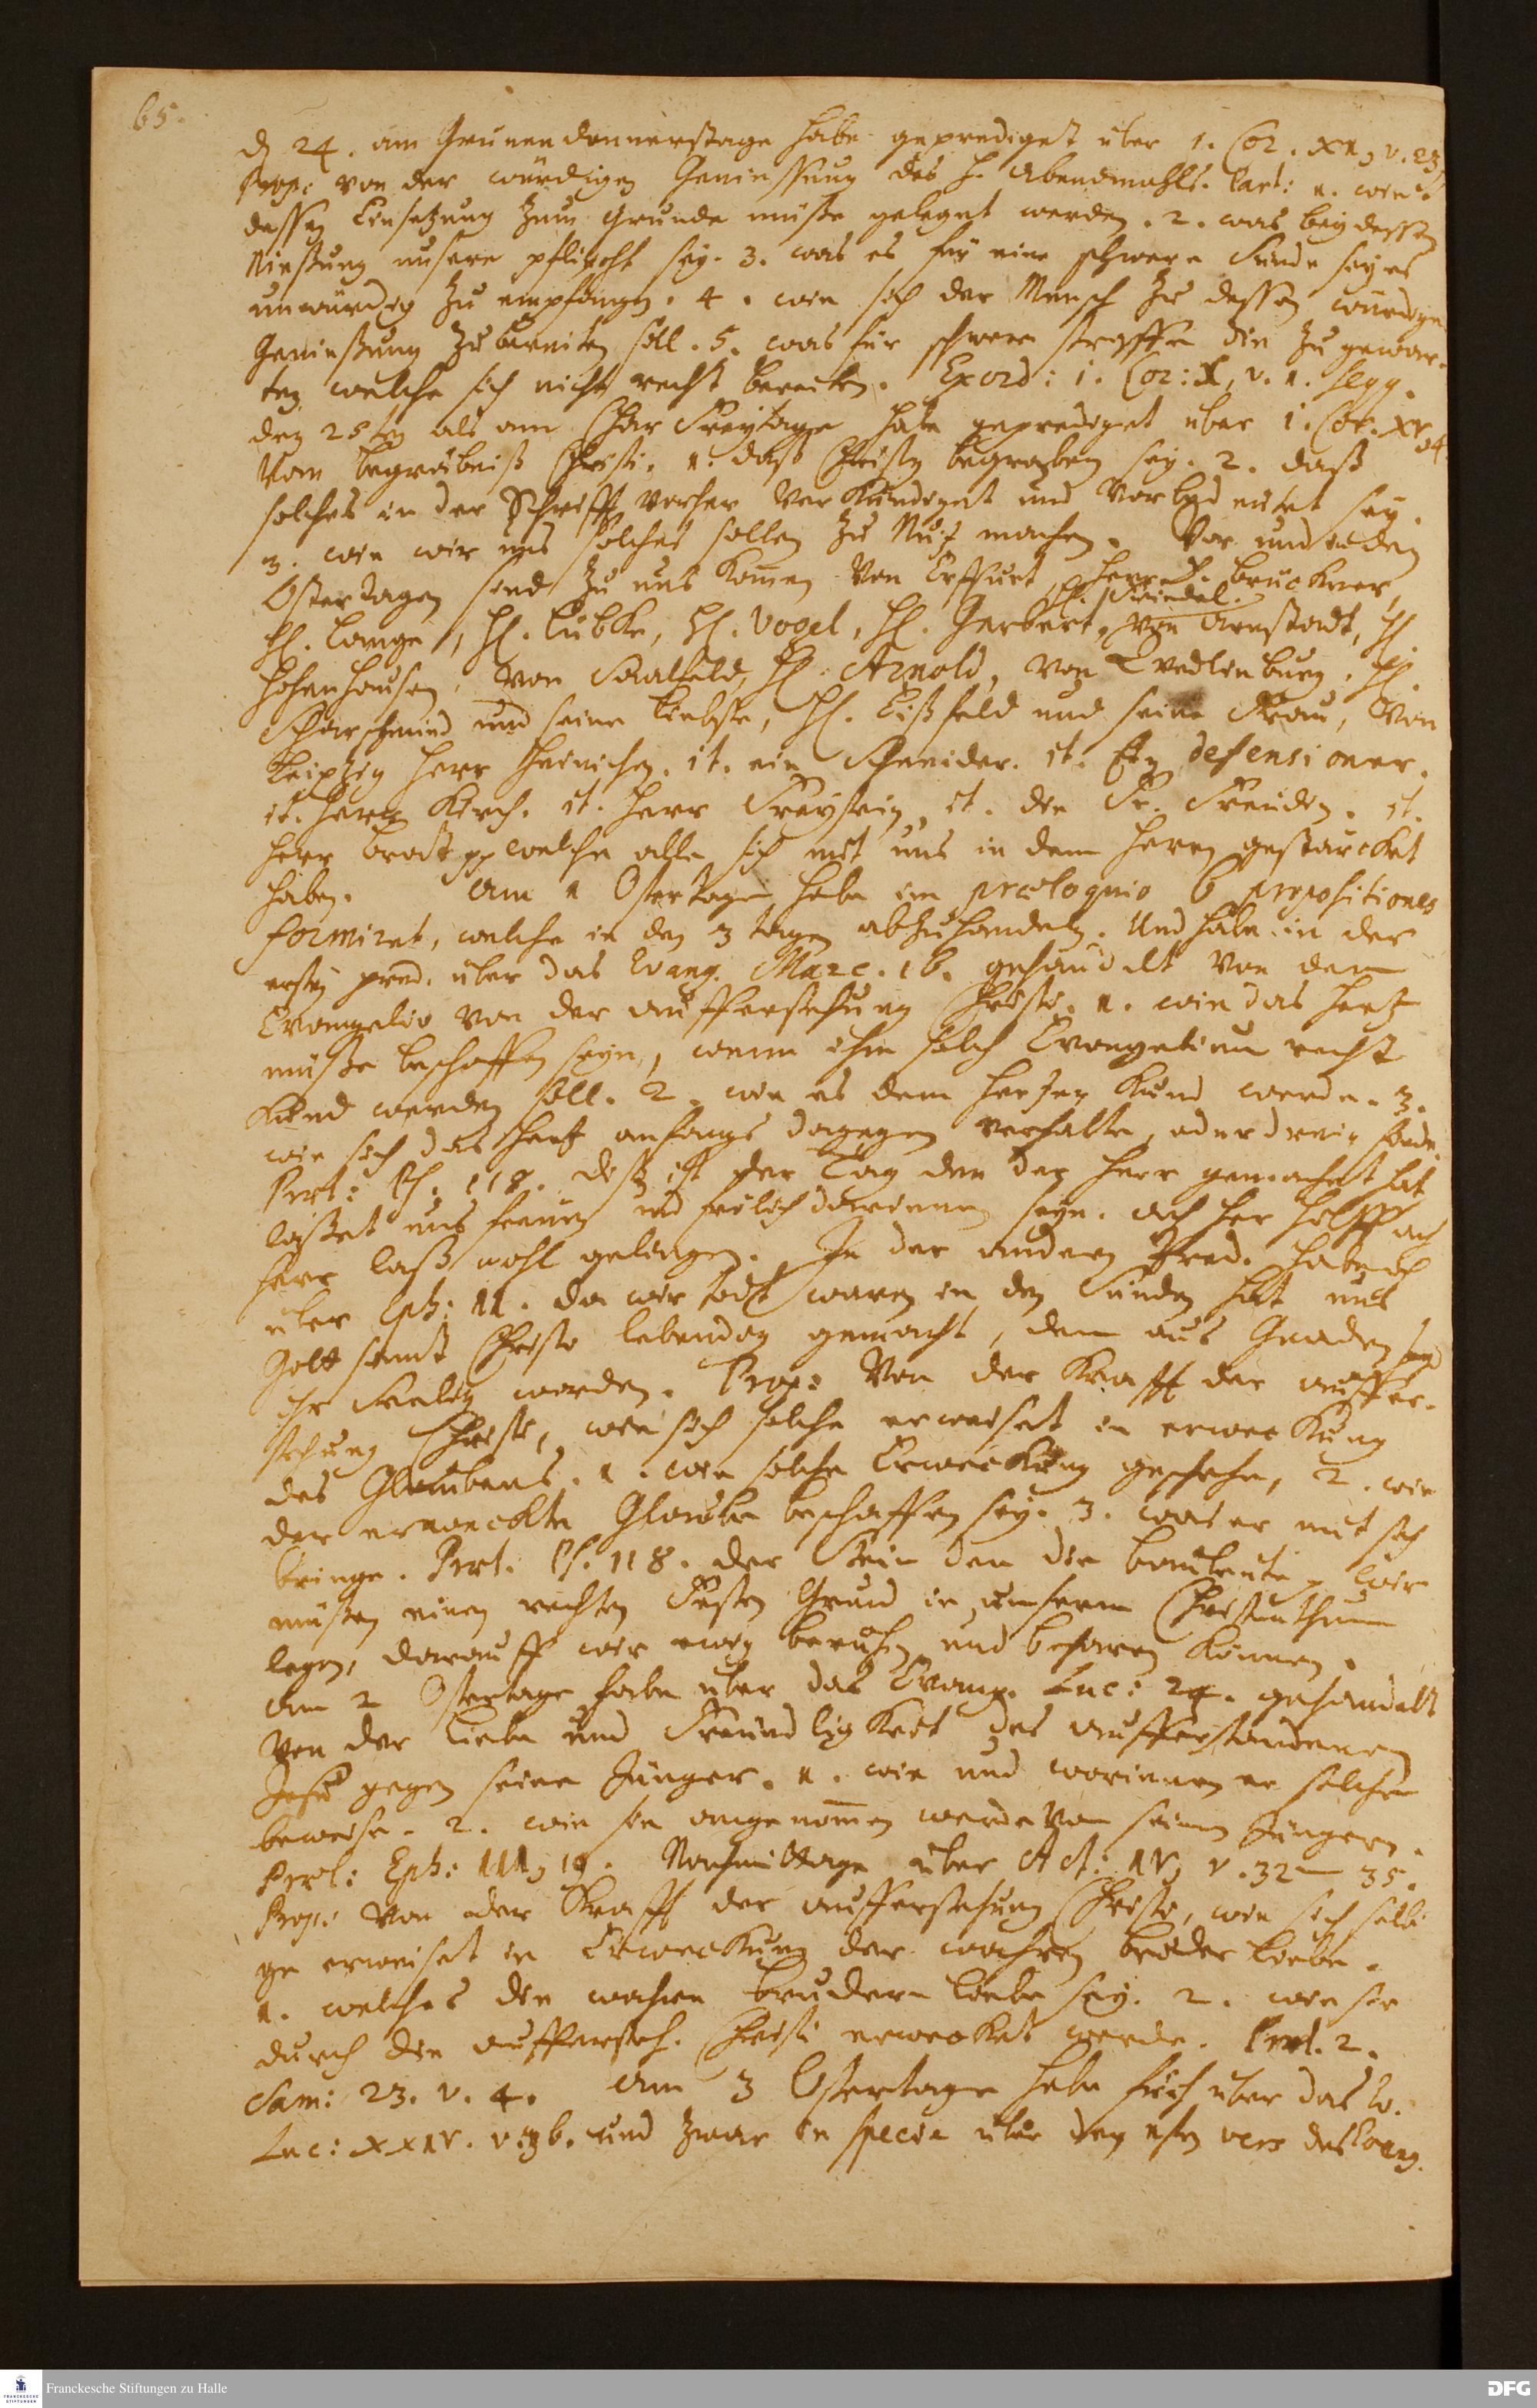 65.
d 24. am Grunendonnerstage habe geprediget über 1. Cor. XI, v. 23
Prop: von der würdigen Geniessung des h. Abendmahls. Part: 1. wie
dessen Einsetzung zum Grunde müße geleget werden. 2. was bey dessen
Nießung unsere pflicht sey. 3. was es für eine schwere Sünde sey es
unwürdig zu empfangen. 4. wie sich der Mensch zu dessen würdigen
Genießung zubereiten soll. 5. was für schwere straffe die zu gewar-
ten welche sich nicht recht bereiten. Exord: 1. Cor: X, v. 1. seqq.
den 25ten als am CharFreytage habe geprediget über 1. Cor. XV, 4.
Vom begräbniß Christi. 1. daß Christus begraben sey. 2. daß
solches in der Schrifft vorher verkündiget und vorbedeutet sey.
3. wie wir uns solches sollen zu Nutz machen. Vor und in den
Ostertagen sind zu uns kom̅en von Erffurt, Herr D. Bruckner,
H. Lange, H. Lübke, H. Vogel, H. Herbert, H. Wiendel. von Arnstadt, H.
Hohenhausen, von Saalfeld, H. Arnold, von Qvedlinburg. H.
Scharschmied und seine Liebste, H. Eißfeld und seine Frau, Von
Leipzig Herr Heinichen. it. ein Schneider. it. Ein defensioner.
it. Herr Kirch. it. Herr Freystein, it. die Fr. Freundin. it.
Herr Brodt pp welche alle sich mit uns in dem Herrn gestärcket
haben. Am 1 Ostertage habe im prœloquio 6 propositiones
formiret, welche in den 3 tagen abzuhandeln. Und habe in der
ersten pred. über das Evang. Marc. 16. gehandelt von dem
Evangelio von der aufferstehung Christi. 1. wie das Hertz
müße beschaffen seyn, wenn ihm solch Evangelium recht
kund werden soll. 2. wie es dem Hertzen kund werde. 3.
wie sich das Hertz anfangs dagegen verhalte, oder drein finde.
Prœl: Ps. 118. diß ist der Tag den der Herr gemachet hat
laßet uns freuen und frölich darinnen seyn. ach Herr hilff ach
Herr laß wohl gelingen. In der andern Pred. habe ich
über Eph: II. da wir todt waren in den Sünden hat uns
Gott samt Christo lebendig gemacht, denn aus Gnaden seyd
ihr Seelig worden. Prop: Von der Krafft der auffer-
stehung Christi, wie sich solche erweiset in erweckung
des Glaubens. 1. wie solche Erweckung geschehe, 2. wie
der erweckte Glaube beschaffen sey. 3. was er mit sich
bringe. Prœl. Ps. 118. der Stein den die bauleute p wir
müßen einen rechten Festen Grund in unserm Christenthum
legen, darauff wir ewig beruhen und beharren können.
Am 2 Ostertage habe über das Evang. Luc: 24. gehandelt
Von der Liebe und Freundligkeit des aufferstandenen
Jesu gegen seine Jünger. 1. wie und worinnen er solche
beweise. 2. wie sie angenom̅en werde von seinen Jüngern.
Prœl: Eph: III, 19. Nachmittage über Act: IV, v. 32 – 35.
Prop: von der Krafft der aufferstehung Christi, wie sich selbi-
ge erweiset in Erweckung der wahren bruder liebe.
1. welches die wahre bruder liebe sey. 2. wie sie
durch die aufferstehung Christi erwecket werde. Prœl. 2.
Sam: 23. v. 4. Am 3 Ostertage habe früh über das Ev.
Luc: XXIV. v. 36. und zwar in specie über den 1sten vers des Evang.
Franckesche Stiftungen zu Halle
DFG